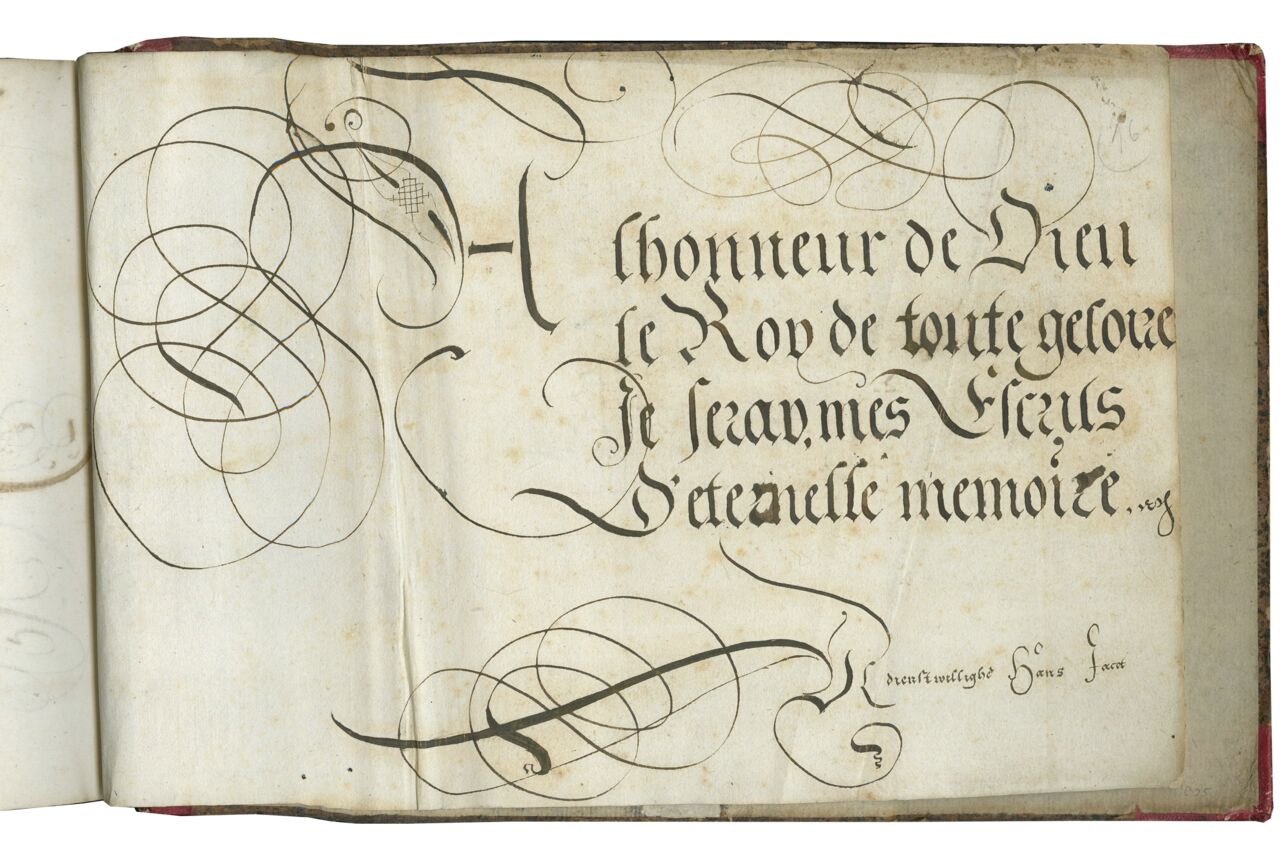 A lhonneur de Dieu
le Roy de toute geloire
Je seray, mes Escrits
D'eternelle memoire.
U dienstwillighe Hans Jacot
16